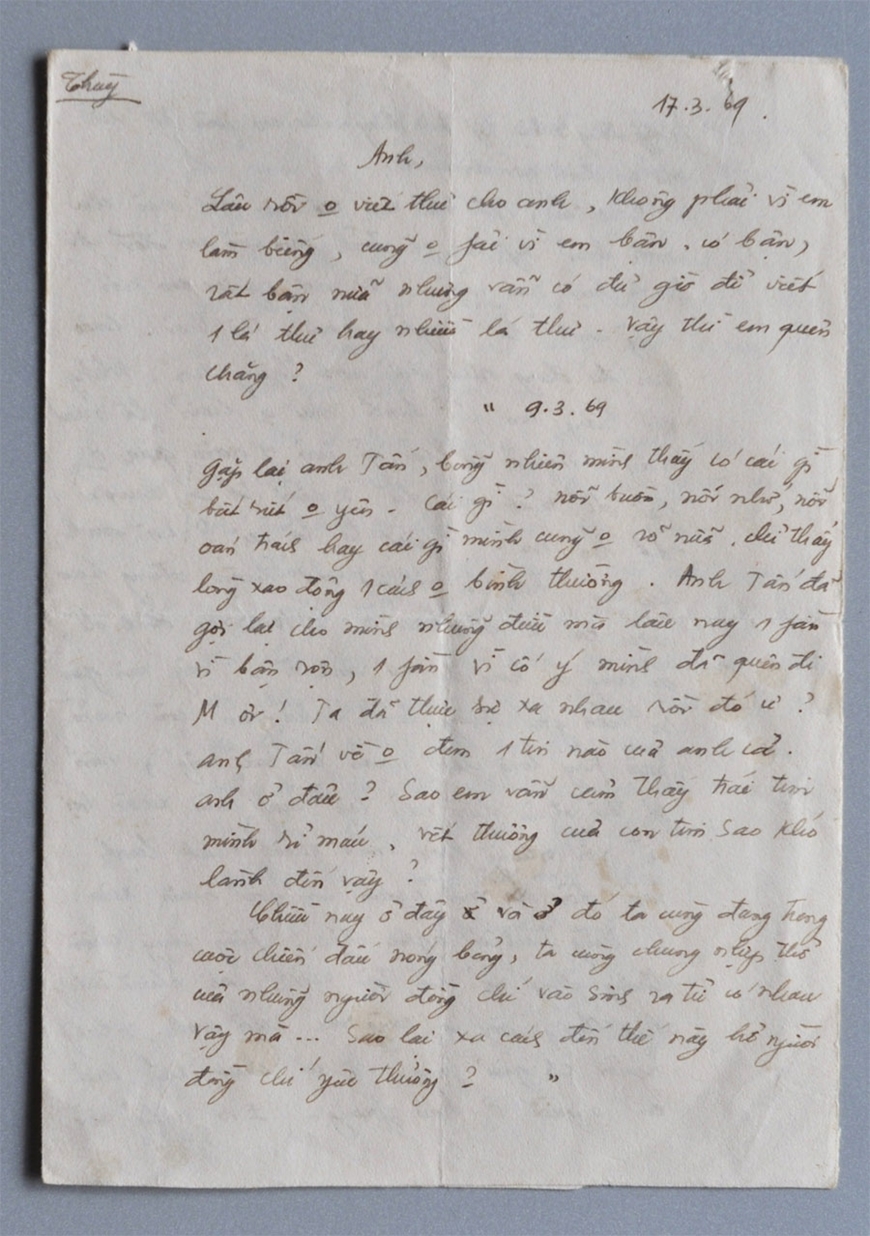 Thùy
17.3.69.
Anh,
Lâu rồi o viết thư cho anh, không phải vì em
làm biếng, cũng o fải vì em bận. có bận,
rất bận nữa nhưng vẫn có đủ giờ để viết
1 lá thư hay nhiều lá thư. Vậy thì em quên
chăng ?
" 9.3.69
Gặp lại anh Tấn, bỗng nhiên mình thấy có cái gì
bứt rứt o yên. Cái gì ? nỗi buồn, nỗi nhớ, nỗi
oán trách hay cái gì mình cũng o rõ nữa. chỉ thấy
lòng xao động 1 cách o bình thường. Anh Tấn đã
gợi lại cho mình những điều mà lâu nay 1 fần
vì bận rộn, 1 fần vì cố ý mình đã quên đi
M ơi ! Ta đã thực sự xa nhau rồi đó ư ?
anh Tấn về o đem 1 tin nào của anh cả.
anh ở đâu ? Sao em vẫn cảm thấy trái tim
mình rỉ máu, vết thương của con tim sao khó
lành đến vậy ?
Chiều nay ở đây và ở đó ta cùng đang trong
cuộc chiến đấu nóng bỏng, ta cùng chung nhịp thở
của những người đồng chí vào sinh ra tử có nhau
vậy mà... Sao lại xa cách đến thế này hở người
đồng chí yêu thương ? "